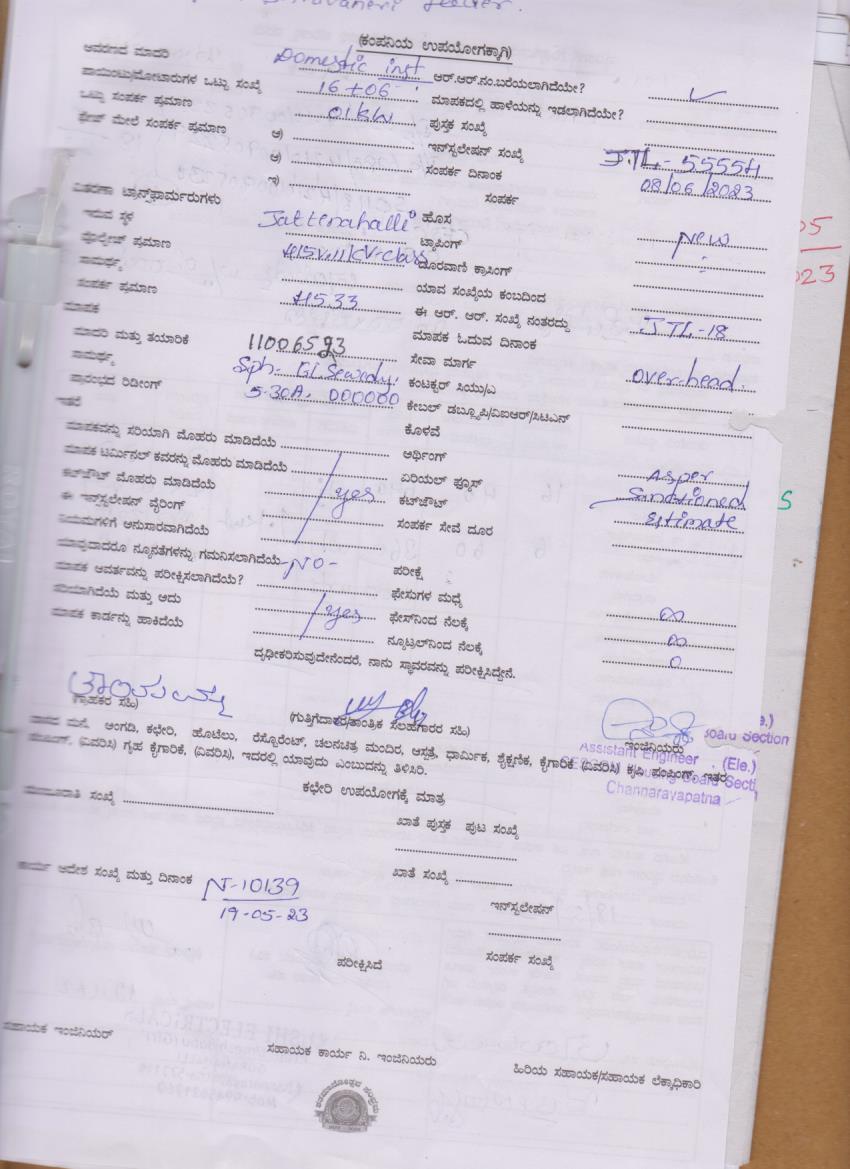 (ಕಂಪನಿಯ ಉಪಯೋಗಕ್ಕಾಗಿ)
ಆವರಣದ ಮಾದರಿ Domestic inst. ಆರ್.ಆರ್.ನಂ.ಬರೆಯಲಾಗಿದೆಯೇ? ✓
ಪಾಯಿಂಟು/ಮೋಟಾರುಗಳ ಒಟ್ಟು ಸಂಖ್ಯೆ 16+06 ಮಾಪಕದಲ್ಲಿ ಹಾಳೆಯನ್ನು ಇಡಲಾಗಿದೆಯೇ?
ಒಟ್ಟು ಸಂಪರ್ಕ ಪ್ರಮಾಣ 01kW ಪುಸ್ತಕ ಸಂಖ್ಯೆ
ಫೇಸ್ ಮೇಲೆ ಸಂಪರ್ಕ ಪ್ರಮಾಣ ಅ) ಇನ್‌ಸ್ಟಲೇಷನ್ ಸಂಖ್ಯೆ JTL-55554
ಆ) ಸಂಪರ್ಕ ದಿನಾಂಕ 08/06/2023
ಇ) ಸಂಪರ್ಕ
ವಿತರಣಾ ಟ್ರಾನ್ಸ್‌ಫಾರ್ಮರುಗಳು
ಇರುವ ಸ್ಥಳ Jattenahalli ಹೊಸ New
ವೋಲ್ಟೇಜ್ ಪ್ರಮಾಣ 415V,11KV-class ಟ್ಯಾಪಿಂಗ್
ಸಾಮರ್ಥ್ಯ ದೂರವಾಣಿ ಕ್ರಾಸಿಂಗ್
ಸಂಪರ್ಕ ಪ್ರಮಾಣ 415.33 ಯಾವ ಸಂಖ್ಯೆಯ ಕಂಬದಿಂದ
ಮಾಪಕ ಈ ಆರ್. ಆರ್. ಸಂಖ್ಯೆ ನಂತರದ್ದು JTL-18
ಮಾದರಿ ಮತ್ತು ತಯಾರಿಕೆ 11006593 ಮಾಪಕ ಓದುವ ದಿನಾಂಕ
ಸಾಮರ್ಥ್ಯ ಸೇವಾ ಮಾರ್ಗ over head.
ಪ್ರಾರಂಭದ ರಿಡೀಂಗ್ 5-30A. 000000 ಕಂಟಕ್ಟರ್ ಸಿಯು/ಎ
ಇತರೆ ಕೇಬಲ್ ಡಬ್ಲ್ಯೂಪಿ/ವಿಐಆರ್/ಸಿಟಿಎನ್
ಮಾಪಕವನ್ನು ಸರಿಯಾಗಿ ಮೊಹರು ಮಾಡಿದೆಯೆ ಕೊಳವೆ
ಮಾಪಕ ಟರ್ಮಿನಲ್ ಕವರನ್ನು ಮೊಹರು ಮಾಡಿದೆಯೆ ಅರ್ಥಿಂಗ್
ಕಟ್‌ಔಟ್ ಮೊಹರು ಮಾಡಿದೆಯೆ yes ಏರಿಯಲ್ ಫ್ಯೂಸ್ As per
ಈ ಇನ್‌ಸ್ಟಲೇಷನ್ ವೈರಿಂಗ್ ಕಟ್‌ಔಟ್ Sanctioned
ನಿಯಮಗಳಿಗೆ ಅನುಸಾರವಾಗಿದೆಯೆ ಸಂಪರ್ಕ ಸೇವೆ ದೂರ Estimate
ಯಾವುದಾದರೂ ನ್ಯೂನತೆಗಳನ್ನು ಗಮನಿಸಲಾಗಿದೆಯೆ -NO- ಪರೀಕ್ಷೆ
ಮಾಪಕ ಆವರ್ತವನ್ನು ಪರೀಕ್ಷಿಸಲಾಗಿದೆಯೆ? ಫೇಸುಗಳ ಮಧ್ಯೆ ∞
ಸರಿಯಾಗಿದೆಯೆ ಮತ್ತು ಅದು yes ಫೇಸ್‌ನಿಂದ ನೆಲಕ್ಕೆ ∞
ಮಾಪಕ ಕಾರ್ಡನ್ನು ಹಾಕಿದೆಯೆ ನ್ಯೂಟ್ರಲ್‌ನಿಂದ ನೆಲಕ್ಕೆ 0
ದೃಢೀಕರಿಸುವುದೇನೆಂದರೆ, ನಾನು ಸ್ಥಾವರವನ್ನು ಪರೀಕ್ಷಿಸಿದ್ದೇನೆ.
(ಗ್ರಾಹಕರ ಸಹಿ) (ಗುತ್ತಿಗೆದಾರರ/ತಾಂತ್ರಿಕ ಸಲಹೆಗಾರರ ಸಹಿ) ಇಂಜಿನಿಯರು
Board Section
Assistant Engineer (Ele.)
Channarayapatna
ವಾಸದ ಮನೆ, ಅಂಗಡಿ, ಕಛೇರಿ, ಹೊಟೆಲು, ರೆಸ್ಟೊರೆಂಟ್, ಚಲನಚಿತ್ರ ಮಂದಿರ, ಆಸ್ಪತ್ರೆ, ಧಾರ್ಮಿಕ, ಶೈಕ್ಷಣಿಕ, ಕೈಗಾರಿಕೆ (ವಿವರಿಸಿ) ಕೃಷಿ ಪಂಪಿಂಗ್, ಇತರ
(ವಿವರಿಸಿ) ಗೃಹ ಕೈಗಾರಿಕೆ, (ವಿವರಿಸಿ), ಇದರಲ್ಲಿ ಯಾವುದು ಎಂಬುದನ್ನು ತಿಳಿಸಿರಿ.
ಕಛೇರಿ ಉಪಯೋಗಕ್ಕೆ ಮಾತ್ರ
ಮಂಜೂರಾತಿ ಸಂಖ್ಯೆ ಖಾತೆ ಪುಸ್ತಕ ಪುಟ ಸಂಖ್ಯೆ
ಕಾರ್ಯ ಆದೇಶ ಸಂಖ್ಯೆ ಮತ್ತು ದಿನಾಂಕ N-10139 ಖಾತೆ ಸಂಖ್ಯೆ
19-05-23 ಇನ್‌ಸ್ಟಲೇಷನ್
ಪರೀಕ್ಷಿಸಿದೆ ಸಂಪರ್ಕ ಸಂಖ್ಯೆ
ಸಹಾಯಕ ಇಂಜಿನಿಯರ್ ಸಹಾಯಕ ಕಾರ್ಯ ನಿ. ಇಂಜಿನಿಯರು ಹಿರಿಯ ಸಹಾಯಕ/ಸಹಾಯಕ ಲೆಕ್ಕಾಧಿಕಾರಿ